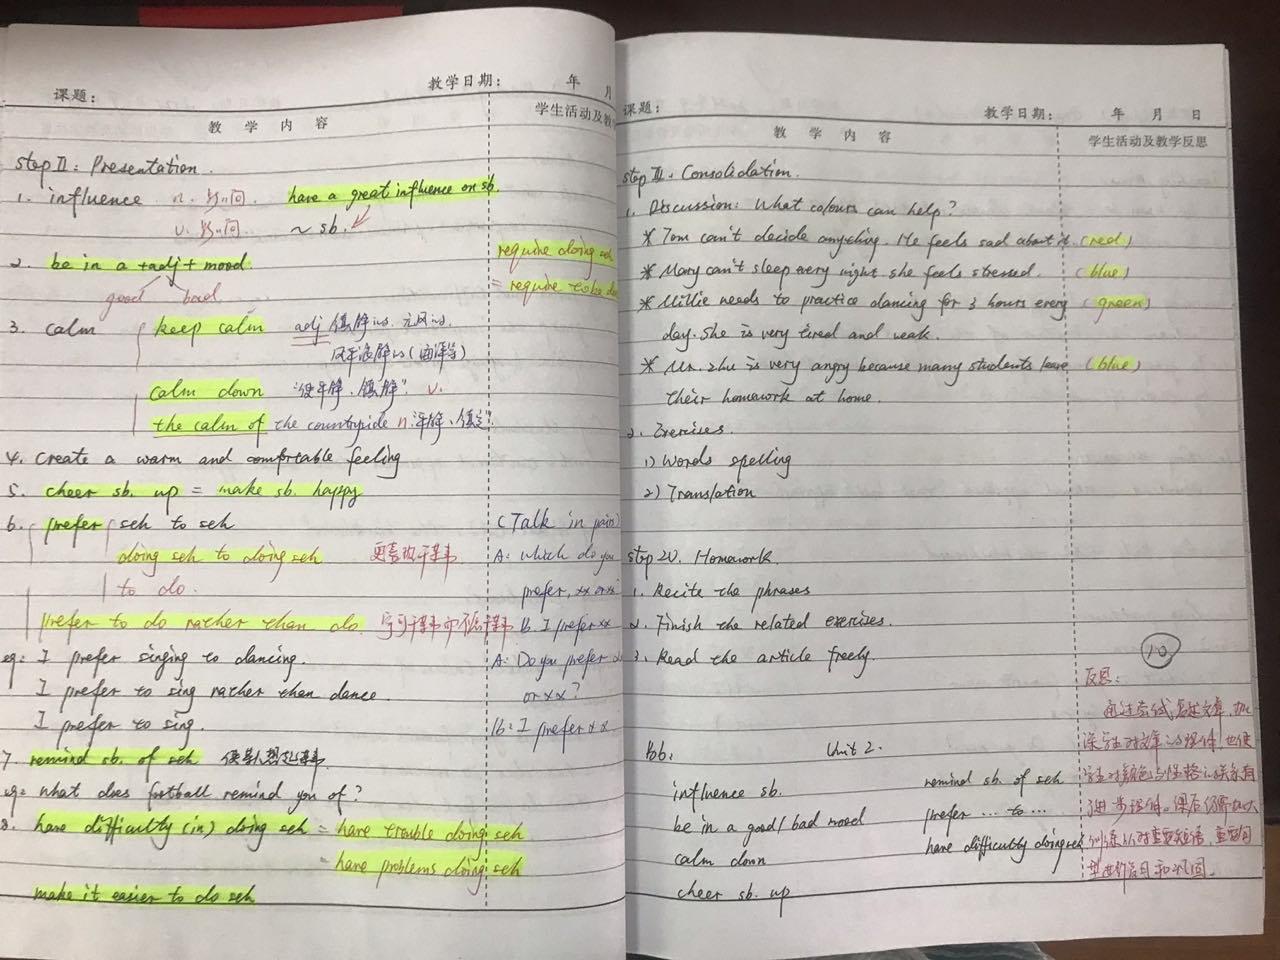 课题：
教学日期： 年 月
教 学 内 容
学生活动及教
step II: Presentation.
1. influence n. 影响. have a great influence on sb.
v. 影响. ~ sb.
2. be in a +adj + mood.
good bad.
require doing sth
= require to be do
3. calm keep calm adj 镇静的, 无风的,
风平浪静的(海洋等)
calm down "使平静、镇静". v.
the calm of the countryside n.平静、镇定".
4. create a warm and comfortable feeling
5. cheer sb. up = make sb. happy
6. prefer sth to sth
doing sth to doing sth 更喜欢干某事
to do.
prefer to do rather than do. 宁可干某事而不愿干某事
(Talk in pairs)
A: which do you
prefer, xx or x
B. I prefer xx
A: Do you prefer
or xx?
B: I prefer xx.
eg: I prefer singing to dancing.
I prefer to sing rather than dance.
I prefer to sing.
7. remind sb. of sth 使某人想起某事.
eg: what does football remind you of?
8. have difficulty (in) doing sth = have trouble doing sth
= have problems doing sth
make it easier to do sth
课题：
教学日期： 年 月 日
教 学 内 容
学生活动及教学反思
step III. Consolidation.
1. Discussion: What colours can help?
* Tom can't decide anything. He feels sad about it. (red)
* Mary can't sleep every night. she feels stressed. (blue)
* Millie needs to practice dancing for 3 hours every (green)
day. She is very tired and weak.
* Mr. Zhu is very angry because many students leave (blue)
their homework at home.
2. Exercises.
1) Words spelling
2) Translation
step IV. Homework.
1. Recite the phrases
2. Finish the related exercises.
3. Read the article freely.
10
反思：
通过尝试复述文章, 加
深学生对文章的理解, 也使
学生对颜色与性格的联系有
了进一步理解。课后仍需加大
训练以对重要短语、重要句
型进行启目和巩固.
Bb: Unit 2.
influence sb. remind sb. of sth
be in a good/bad mood prefer ... to ...
calm down have difficulty doing sth
cheer sb. up